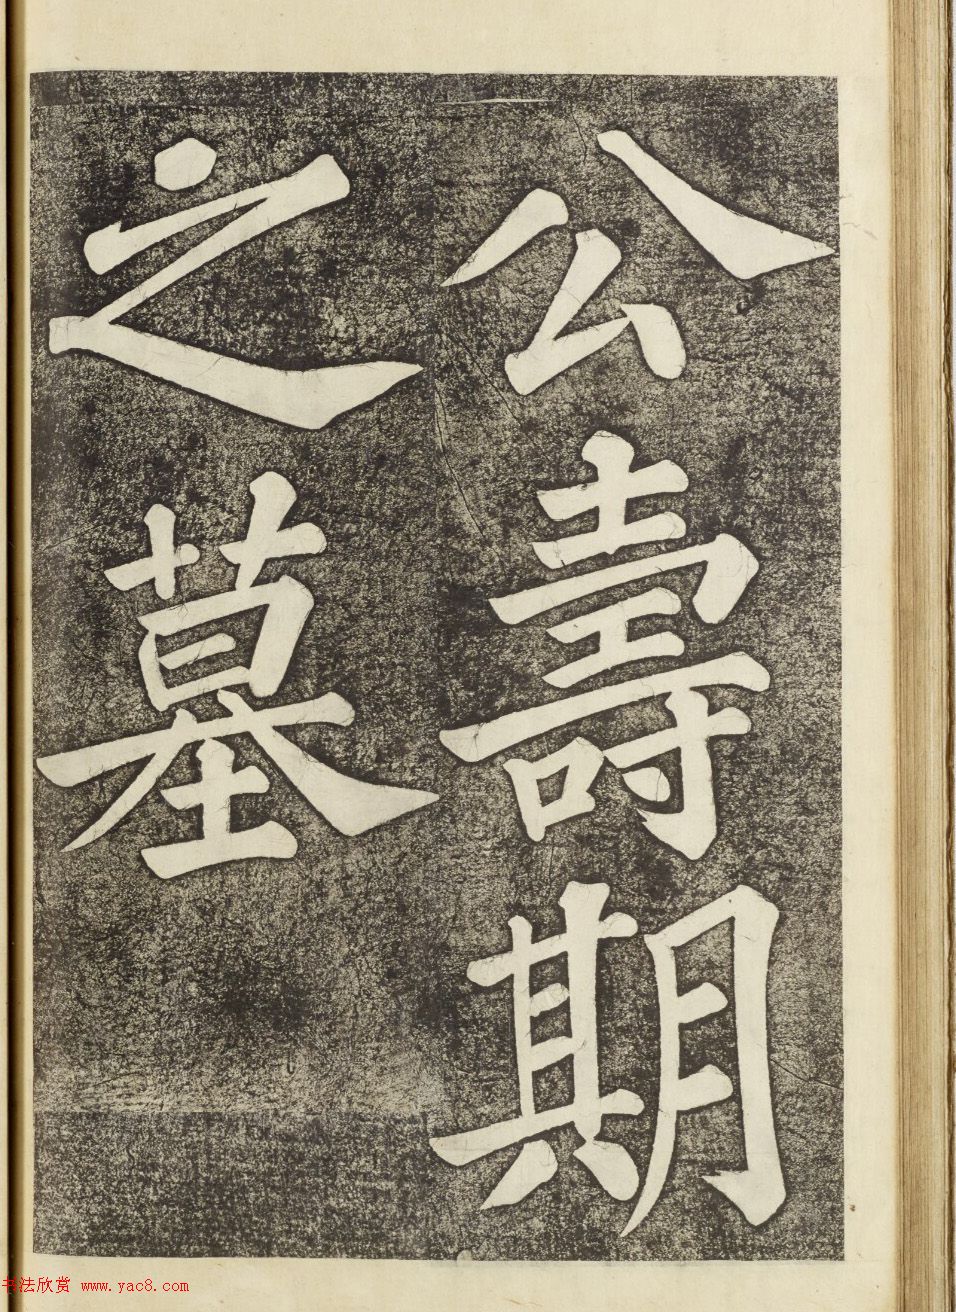 公壽期
之墓
书法欣赏 www.yac8.com